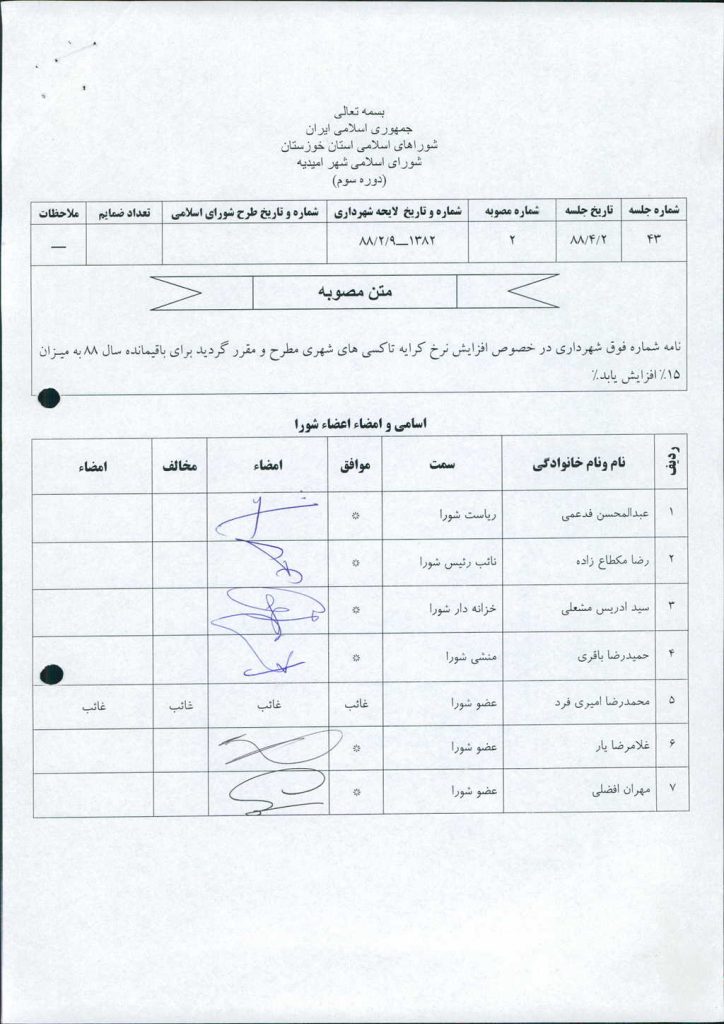 بسمه تعالی
جمهوری اسلامی ایران
شوراهای اسلامی استان خوزستان
شورای اسلامی شهر امیدیه
(دوره سوم)
شماره جلسه	تاریخ جلسه	شماره مصوبه	شماره و تاریخ لایحه شهرداری	شماره و تاریخ طرح شورای اسلامی	تعداد ضمایم	ملاحظات
۴۳	۸۸/۴/۲	۲	۱۳۸۲—۸۸/۲/۹			—
متن مصوبه
نامه شماره فوق شهرداری در خصوص افزایش نرخ کرایه تاکسی های شهری مطرح و مقرر گردید برای باقیمانده سال ۸۸ به میزان
۱۵٪ افزایش یابد.٪
اسامی و امضاء اعضاء شورا
ردیف	نام ونام خانوادگی	سمت	موافق	امضاء	مخالف	امضاء
۱	عبدالمحسن فدعمی	ریاست شورا	*
۲	رضا مکطاع زاده	نائب رئیس شورا	*
۳	سید ادریس مشعلی	خزانه دار شورا	*
۴	حمیدرضا باقری	منشی شورا	*
۵	محمدرضا امیری فرد	عضو شورا	غائب	غائب	غائب	غائب
۶	غلامرضا یار	عضو شورا	*
۷	مهران افضلی	عضو شورا	*